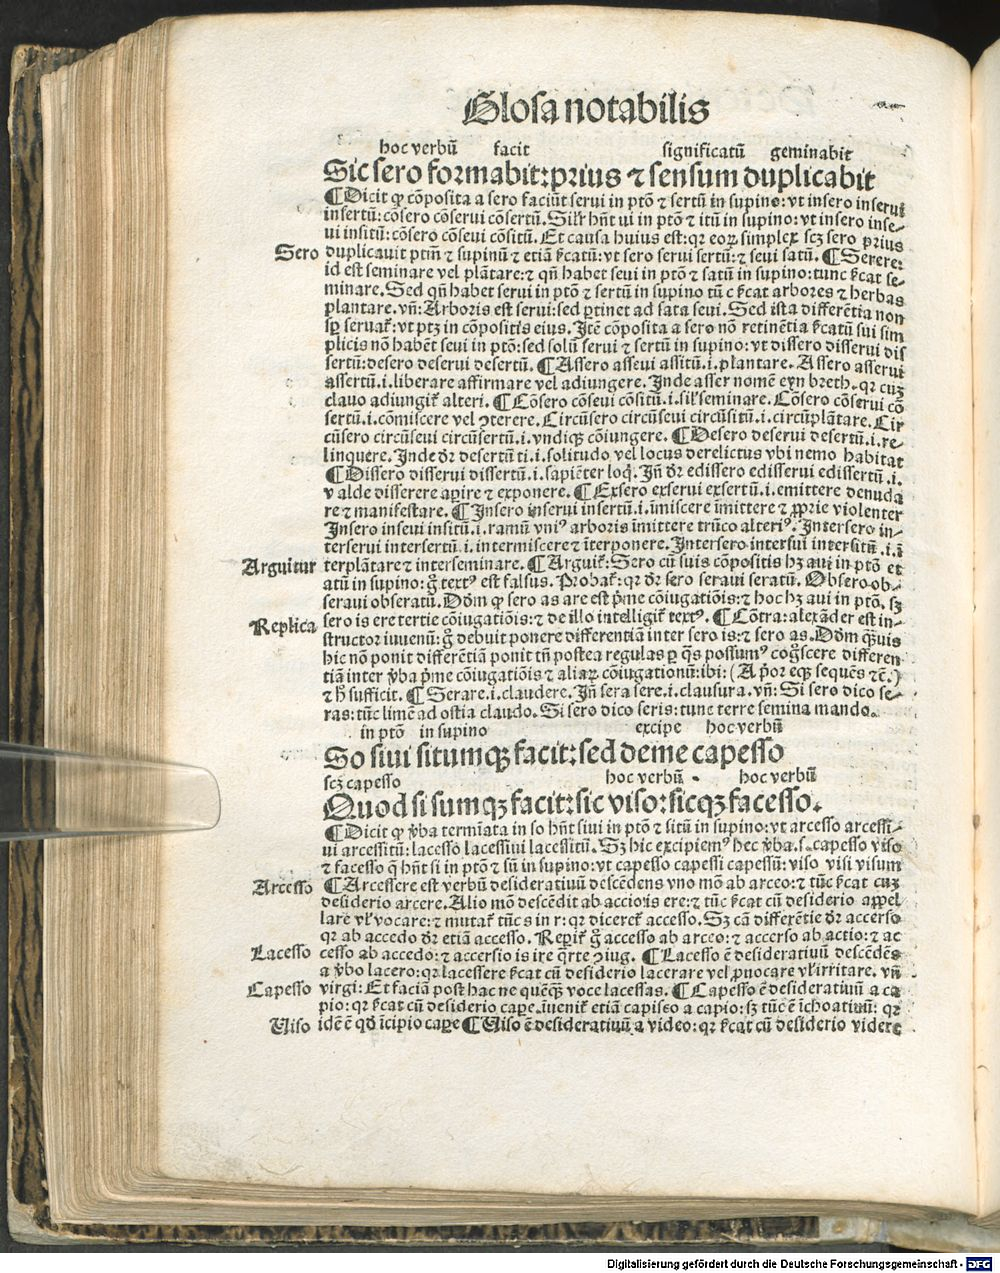 Glosa notabilis
hoc verbū facit significatū geminabit
Sic sero formabit: prius ⁊ sensum duplicabit
¶Dicit ꝙ cōposita a sero faciūt serui in ptō ⁊ sertū in supino: vt insero inserui
insertū: cōsero cōserui cōsertū. Silr̄ hn̄t ui in ptō ⁊ itū in supino: vt insero inse-
ui insitū: cōsero cōseui cōsitū. Et causa huius est: qꝛ eoꝝ simplex scꝫ sero prius
Sero duplicauit ptm̄ ⁊ supinū ⁊ etiā ſcatū: vt sero serui sertū: ⁊ seui satū. ¶Serere:
id est seminare vel plātare: ⁊ qn̄ habet seui in ptō ⁊ satū in supino: tunc ſcat se-
minare. Sed qn̄ habet serui in ptō ⁊ sertū in supino tūc ſcat arbores ⁊ herbas
plantare. vn̄: Arboris est serui: sed ꝑtinet ad sata seui. Sed ista differētia non
sꝑ seruat̄: vt ptꝫ in cōpositis eius. Itē cōposita a sero nō retinētia ſcatū sui sim
plicis nō habēt seui in ptō: sed solū serui ⁊ sertū in supino: vt dissero disserui dis
sertū: desero deserui desertū. ¶Assero asseui assitū .i. plantare. Assero asserui
assertū .i. liberare affirmare vel adiungere. Inde asser nomē eyn breth. qꝛ cuꝫ
clauo adiungit̄ alteri. ¶Cōsero cōseui cōsitū .i. sil̄ seminare. Cōsero cōserui cō
sertū .i. cōmiscere vel ꝯterere. Circūsero circūseui circūsitū .i. circūplātare. Cir
cūsero circūseui circūsertū .i. vndiqꝫ cōiungere. ¶Desero deserui desertū .i. re-
linquere. Inde dr̄ desertū ti .i. solitudo vel locus derelictus vbi nemo habitat
¶Dissero disserui dissertū .i. sapiēter loq̄. Jn̄ dr̄ edissero edisserui edissertū .i.
valde disserere aperire ⁊ exponere. ¶Exsero exserui exsertū .i. emittere denuda
re ⁊ manifestare. ¶Insero inserui insertū .i. īmiscere īmittere ⁊ ꝓprie violenter
Insero inseui insitū .i. ramū vniꝰ arboris īmittere trūco alteriꝰ. Intersero in-
terserui intersertū .i. intermiscere ⁊ īterponere. Intersero intersui intersitū .i. ī
Arguitur terplātare ⁊ interseminare. ¶Arguit̄: Sero cū suis cōpositis hꝫ aui in ptō et
atū in supino: g̊ textꝰ est falsus. Probat̄: qꝛ dr̄ sero seraui seratū. Obsero ob-
seraui obseratū. Dd̄m ꝙ sero as are est pͥme cōiugatiōis: ⁊ hoc hꝫ aui in ptō, sꝫ
sero is ere tertie cōiugatiōis: ⁊ de illo intelligit̄ textꝰ. ¶Cōtra: alexāder est in-
Replica structor iuuenū: g̊ debuit ponere differentiā inter sero is: ⁊ sero as. Dd̄m qͣuis
hic nō ponit differētiā ponit tn̄ postea regulas ꝑ q̄s possumꝰ cogͦscere differen
tiā inter v̄ba pͥme cōiugatiōis ⁊ aliaꝝ cōiugationū: ibi: (A pͥor eqꝫ sequēs ⁊c̄.)
⁊ h̄ sufficit. ¶Serare .i. claudere. Jn̄ sera sere .i. clausura. vn̄: Si sero dico se-
ras: tūc limē ad ostia claudo. Si sero dico seris: tunc terre semina mando.
in ptō in supino excipe hoc verbū
So siui situmqꝫ facit: sed deme capesso
scꝫ capesso hoc verbū hoc verbū
Quod si sumqꝫ facit: sic viso: sicqꝫ facesso.
¶Dicit ꝙ v̄ba termīata in so hn̄t siui in ptō ⁊ situ̅ in supino: vt arcesso arcessi-
ui arcessitū: lacesso lacessiui lacessitū. Sꝫ hic excipiemꝰ hec v̄ba .s. capesso viso
⁊ facesso q̄ hn̄t si in ptō ⁊ sū in supino: vt capesso capessi capessū: viso visi visum
Arcesso ¶Arcessere est verbū desideratiuū descēdens vno mō ab arceo: ⁊ tūc ſcat cuꝫ
desiderio arcere. Alio mō descēdit ab accio is ere: ⁊ tūc ſcat cū desiderio appel
lare vl̄ vocare: ⁊ mutat̄ tūc s in r: qꝛ diceret̄ accesso. Sꝫ cā differētie dr̄ accerso
qꝛ ab accedo dr̄ etiā accesso. Reperit̄ g̊ accesso ab arceo: ⁊ accerso ab actio: ⁊ ac
Lacesso cesso ab accedo: ⁊ accersio is ire q̄rte ꝯiug. ¶Lacesso ē desideratiuū descēdēs
a v̄bo lacero: qꝛ lacessere ſcat cū desiderio lacerare vel ꝓuocare vl̄ irritare. vn̄
Capesso virgi: Et faciā post hac ne quēqͣꝫ voce lacessas. ¶Capesso ē desideratiuū a ca
pio: qꝛ ſcat cū desiderio capere. inuenit̄ etiā capisco a capio: sꝫ tūc ē īchoatiuū: qꝛ
Uiso idē ē qd̄ īcipio capere ¶Uiso ē desideratiuū a video: qꝛ ſcat cū desiderio videre
Digitalisierung gefördert durch die Deutsche Forschungsgemeinschaft - DFG